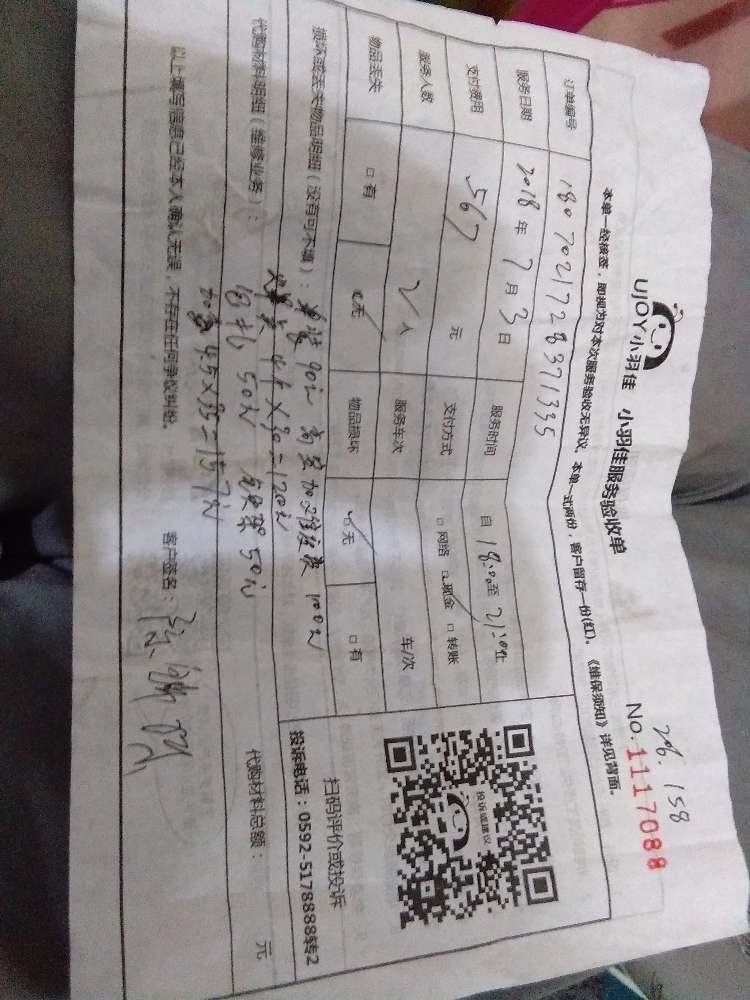 UJOY小羽佳 小羽佳服务验收单
26.158
No.1117088
本单一经接签，即视为对本次服务验收无异议，本单一式两份，客户留存一份(红)。《维保须知》详见背面。
订单编号 1807021728371335
服务日期 2018年7月3日 服务时间 自18:00至21:00止
支付费用 567元 支付方式 □网络 □现金 □转账
服务人数 2人 服务车次 车/次
物品丢失 □有 □无 物品损坏 □无 □有
损坏或丢失物品明细（没有可不填）： 90元 加 费 100元
4.5×30=120元
代购材料明细（维修业务）： 50元 50元
加 4.5×35=157元
代购材料总额： 元
以上填写信息已经本人确认无误，不存在任何争议纠纷。 客户签名：
投诉或建议
扫码评价或投诉
投诉电话：0592-5178888转2